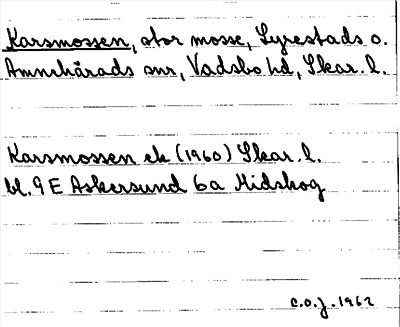 Karsmossen, stor mosse, Lyrestads o.
Amnehärads snr, Vadsbo hd, Skar. l.
Karsmossen ek (1960) Skar. l.
bl. 9 E Askersund 6a Midskog
C.O.J. 1962